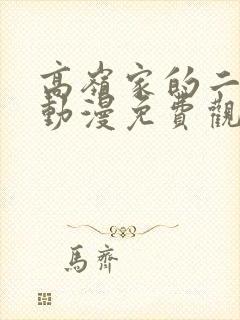 高嶺家的二
動漫免費觀
馬齊